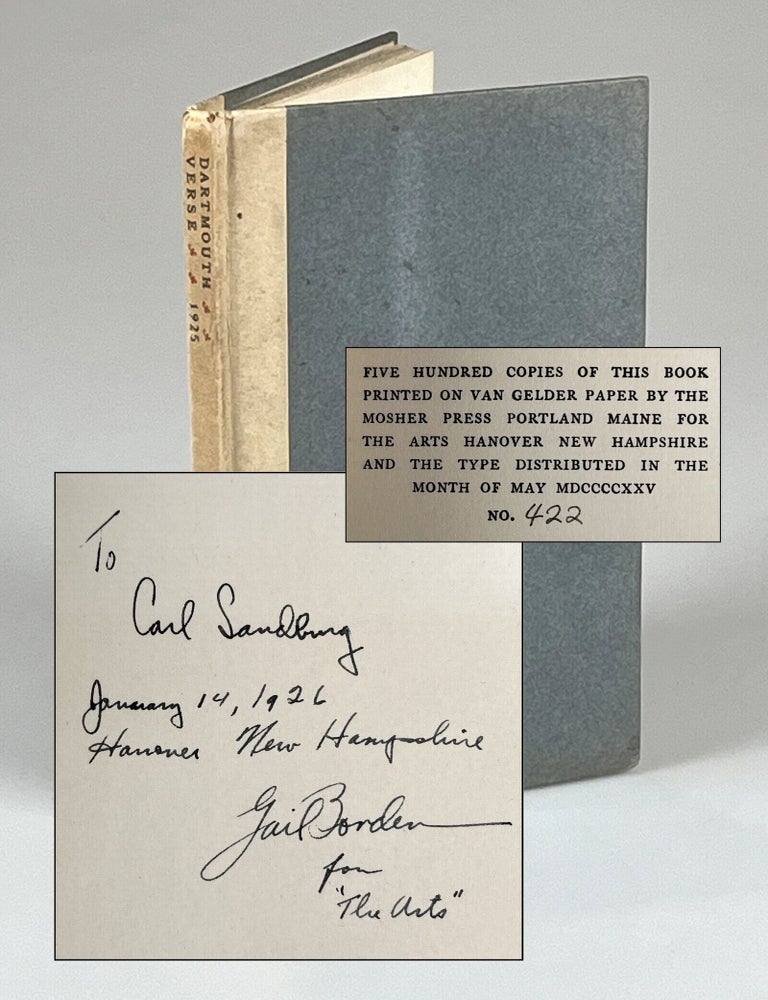 DARTMOUTH
VERSE 1925
FIVE HUNDRED COPIES OF THIS BOOK
PRINTED ON VAN GELDER PAPER BY THE
MOSHER PRESS PORTLAND MAINE FOR
THE ARTS HANOVER NEW HAMPSHIRE
AND THE TYPE DISTRIBUTED IN THE
MONTH OF MAY MDCCCCXXV
NO. 422
To
Carl Sandburg
January 14, 1926
Hanover New Hampshire
Gail Borden
for
"The Arts"